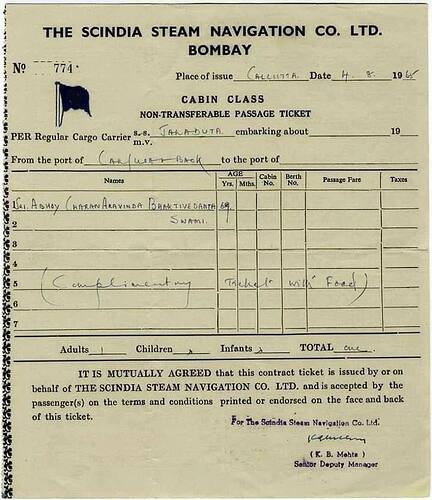 THE SCINDIA STEAM NAVIGATION CO. LTD.
BOMBAY
Nº 774
Place of issue CALCUTTA Date 4. 8. 1965
CABIN CLASS
NON-TRANSFERABLE PASSAGE TICKET
PER Regular Cargo Carrier s.s. m.v. JALADUTA embarking about 19
From the port of to the port of
Names AGE Yrs. Mths. Cabin No. Berth No. Passage Fare Taxes
1 Sri. ABHOY CHARAN ARAVINDA BHAKTIVEDANTA 69
2 SWAMI.
3
4
5 (Complimentary Ticket with Food)
6
7
Adults 1 Children x Infants x TOTAL one.
IT IS MUTUALLY AGREED that this contract ticket is issued by or on
behalf of THE SCINDIA STEAM NAVIGATION CO. LTD. and is accepted by the
passenger(s) on the terms and conditions printed or endorsed on the face and back
of this ticket.
For The Scindia Steam Navigation Co. Ltd.
(K. B. Mehta)
Senior Deputy Manager